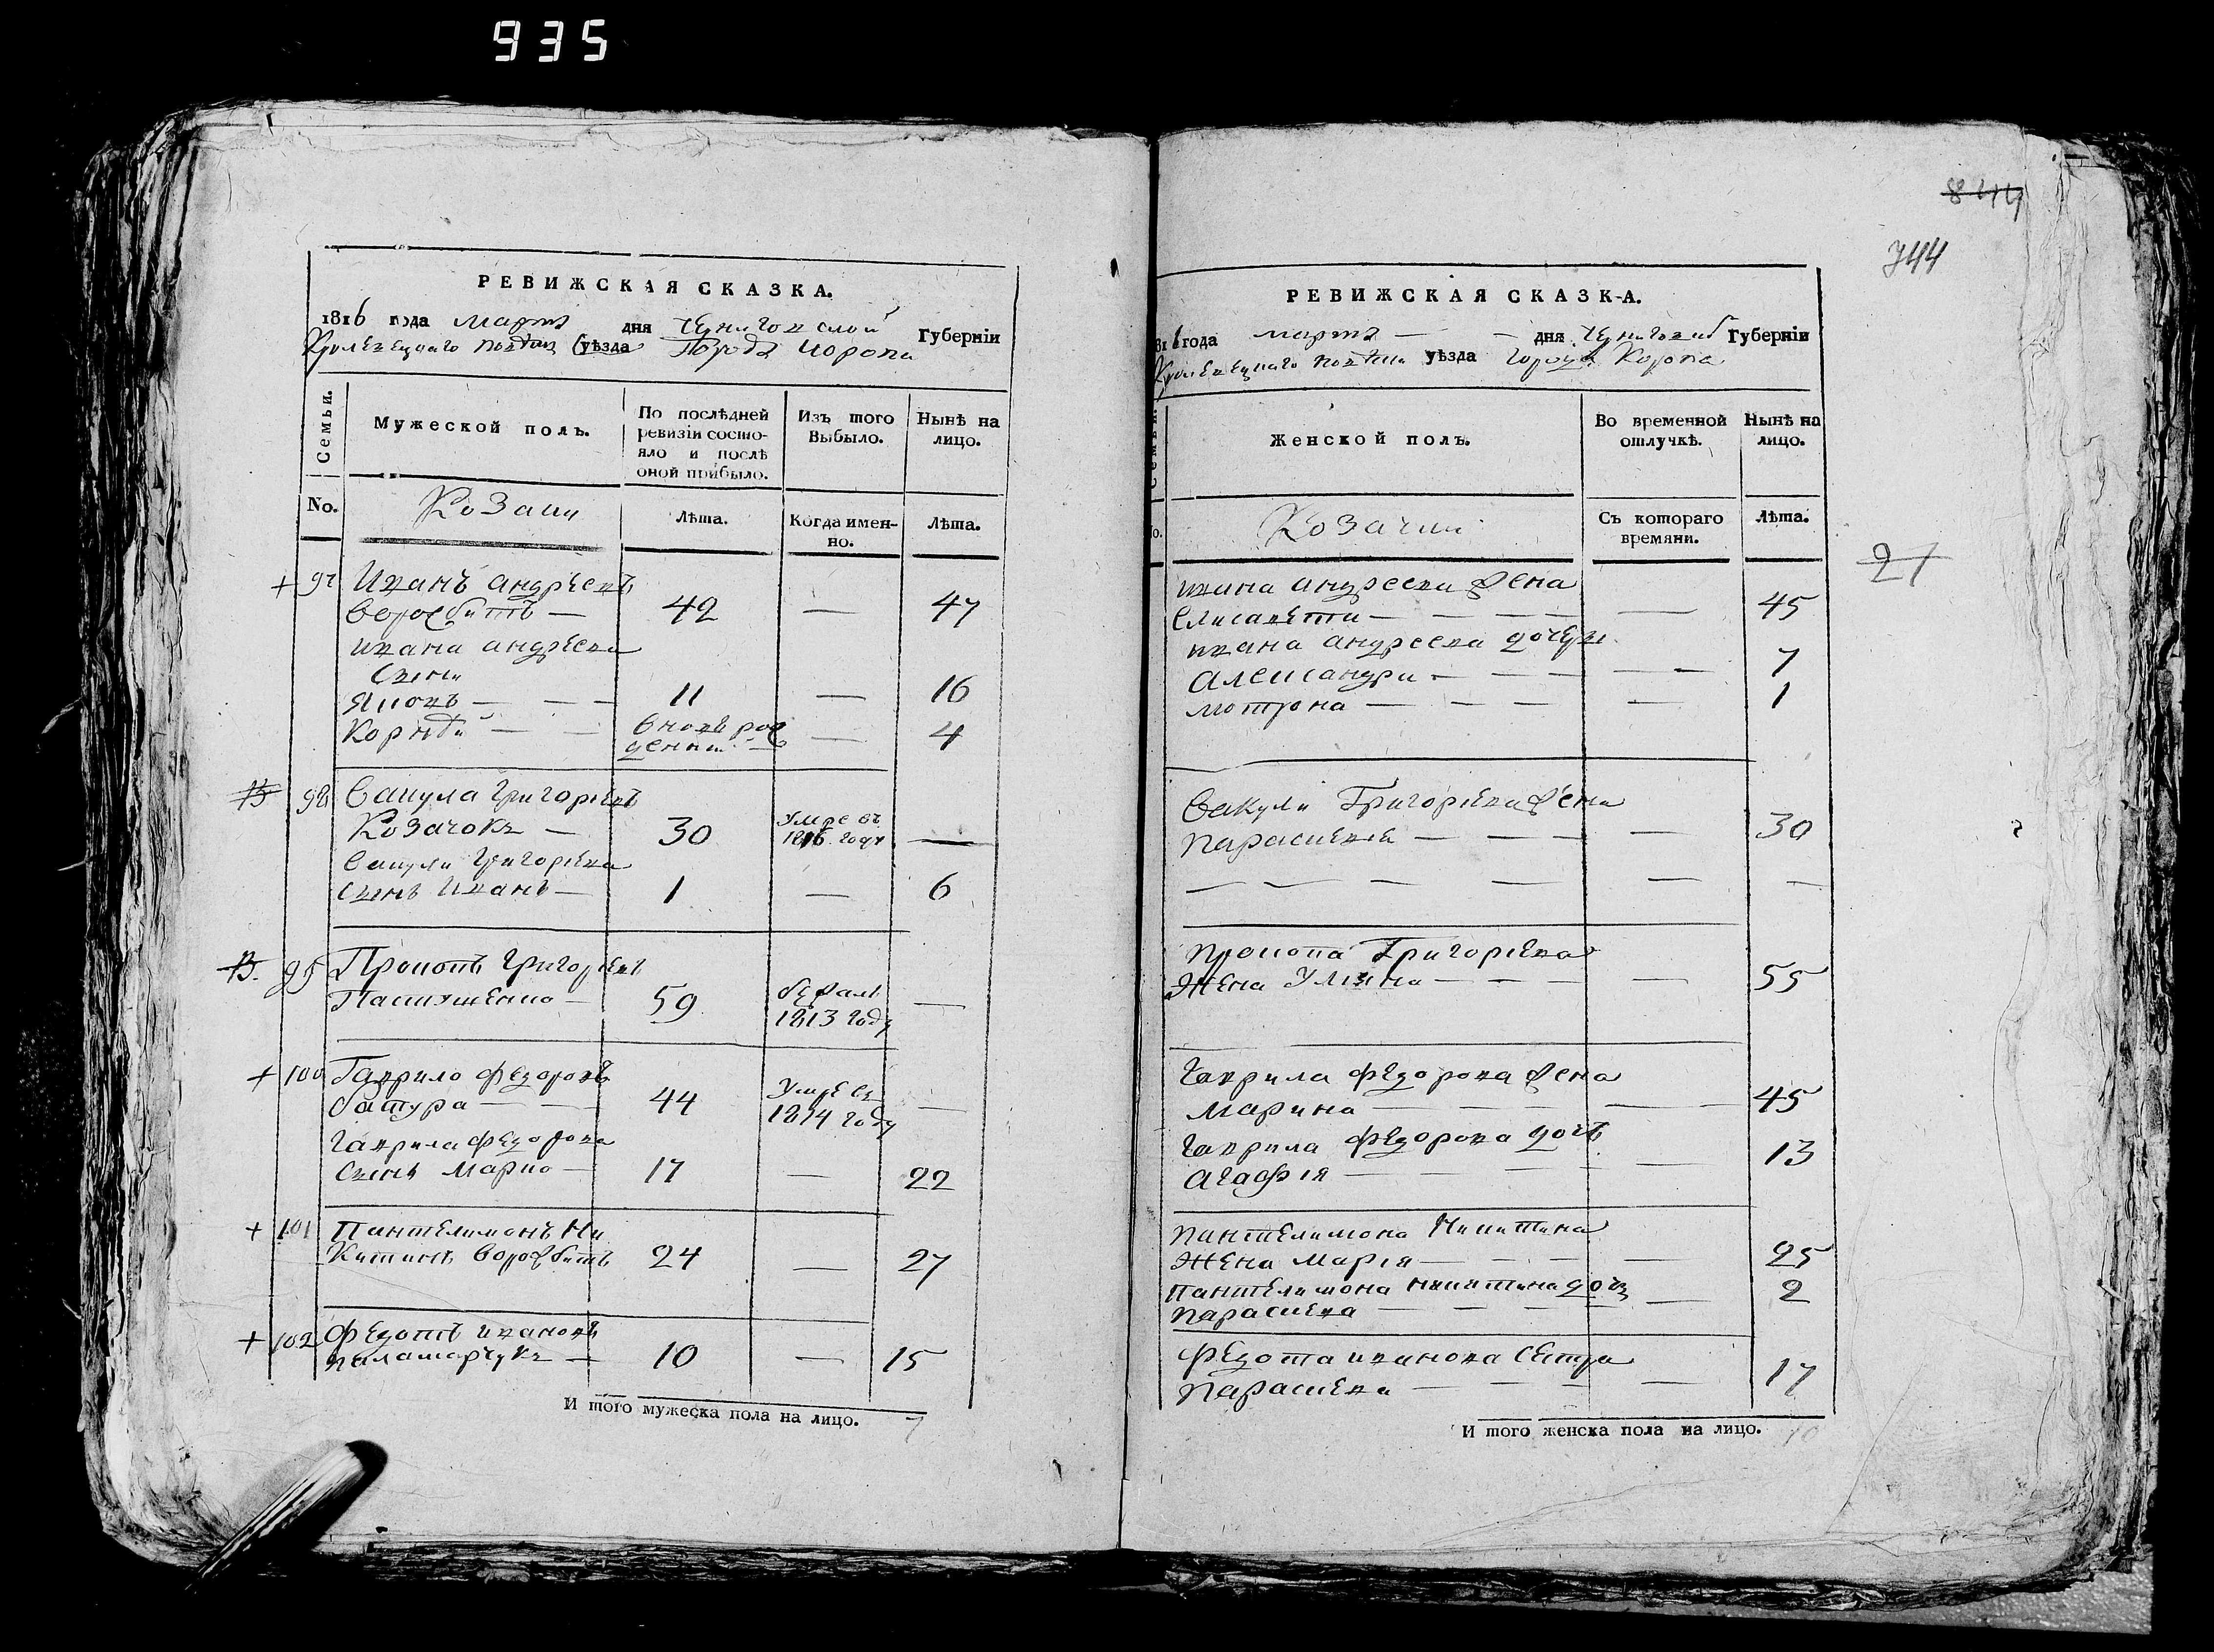 935
844
744
РЕВИЖСКАЯ СКАЗКА.
1816 года марта дня Черниговской Губерніи
Кролевецкаго повѣта уѣзда Города Коропа
Семьи.
Мужеской полъ.
По послѣдней ревизіи состояло и послѣ оной прибыло.
Изъ того Выбыло.
Нынѣ на лицо.
No.
Козаки
Лѣта.
Когда именно.
Лѣта.
+
Иванъ андреевъ
42 — 47
ивана андреева
сыни
Яковъ — — — 11 — 16
Корнѣй — — вновь рожденный — 4
98 Вакула Григориевъ
Козачокъ — 30 Умре въ 1816 году —
Вакули Григориева
сынъ Иванъ — 1 — 6
Прокопъ Григориевъ
59 1813 году —
+ 100 Гаврило Федоровъ
батура — — 44 Умре въ 1814 году —
Гаврила Федорова
сынъ Марко — 17 — 22
+ 101 Пантелимонъ Ни
китинъ Ворожбитъ 24 — 27
+ 102 Федотъ ивановъ
паламарчукъ — 10 — 15
И того мужеска пола на лицо. 7
РЕВИЖСКАЯ СКАЗКА.
816 года марта — — дня Черниговской Губерніи
Кролевецкаго повѣта уѣзда города Коропа
Семьи.
Женской полъ.
Во временной отлучкѣ.
Нынѣ на лицо.
No.
Козачки
Съ котораго времяни.
Лѣта.
21
ивана андреева жена
Елисавета — — — — — 45
ивана андреева дочери
Александра — — — — — 7
мотрона — — — — — 1
Вакули Григориева жена
Параскевия — — — — 30
— — — — — —
прокопа Григориева
жена Улияна — — — — 55
Гаврила Федорова жена
Марина — — — — — 45
Гаврила Федорова дочь
Агафия — — — — — 13
Пантелимона Никитина
жена Мария — — — — 25
Пантелимона никитина дочь
параскева — — — — — 2
Федота иванова сестра
Параскева — — — — 17
И того женска пола на лицо. 10